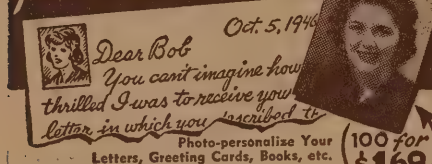 Oct. 5, 1946
Dear Bob
You can't imagine how
thrilled I was to receive your
letter in which you inscribed th
Photo-personalize Your
Letters, Greeting Cards, Books, etc.
100 for
$1.69